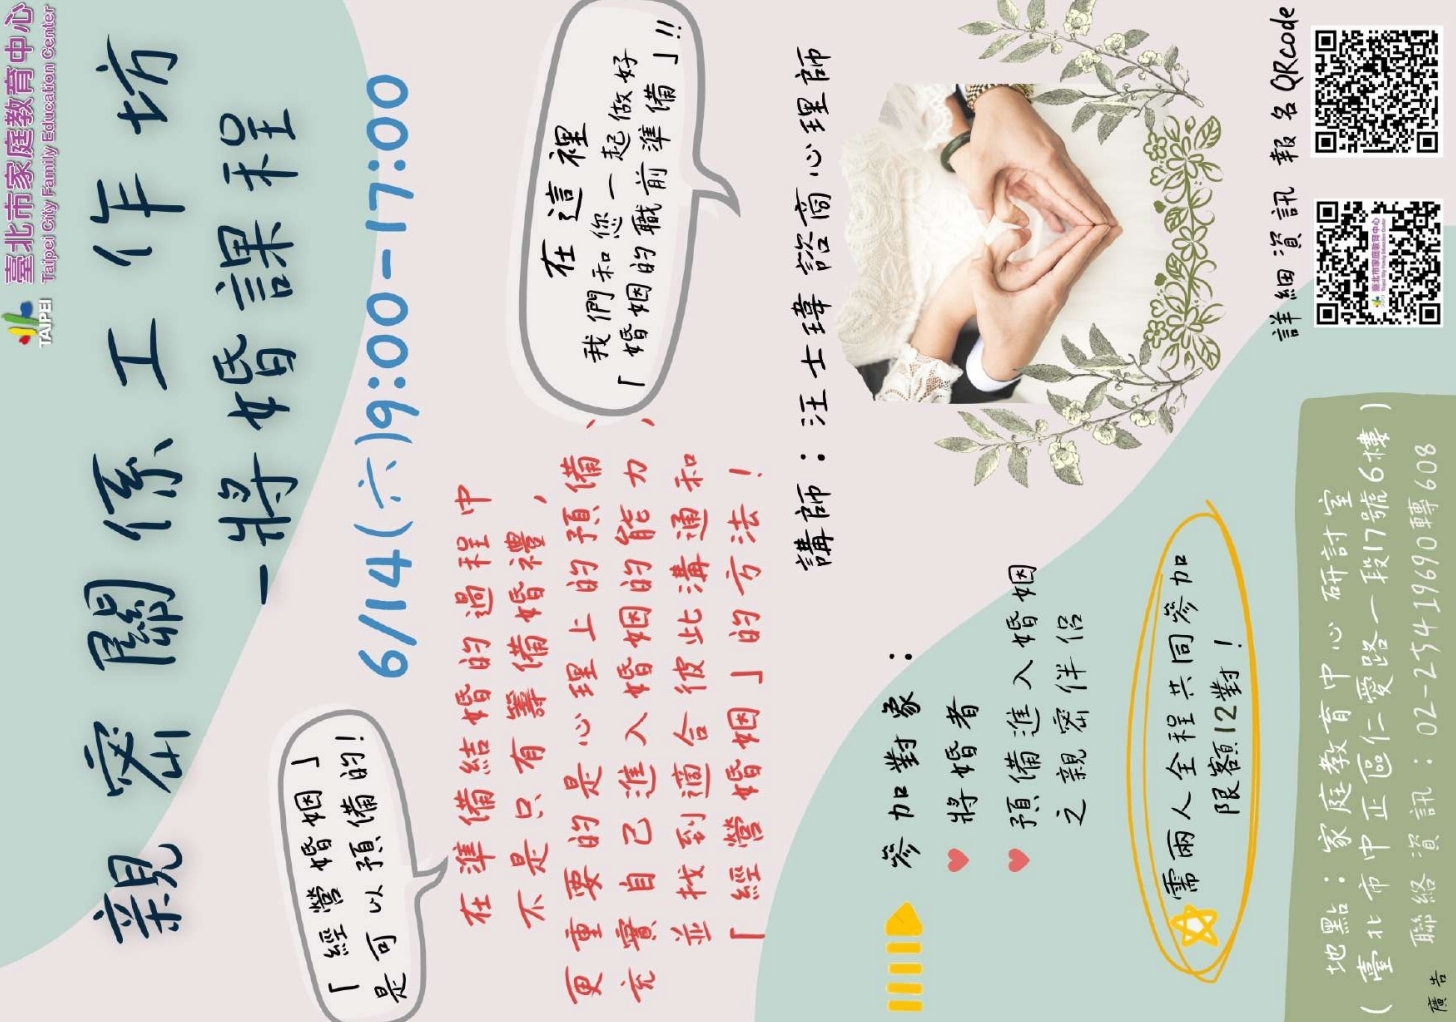 臺北市家庭教育中心
Taipei City Family Education Center
TAIPEI
親密關係工作坊
-將婚課程
6/14(六)9:00-17:00
「經營婚姻」
是可以預備的!
在準備結婚的過程中
不是只有籌備婚禮,
更重要的是心理上的預備、
充實自己進入婚姻的能力,
並找到適合彼此溝通和
「經營婚姻」的方法!
在這裡
我們和您一起做好
「婚姻的職前準備」!!
講師:汪士瑋 諮商心理師
參加對象:
將婚者
預備進入婚姻
之親密伴侶
需兩人全程共同參加
限額12對!
詳細資訊 報名QRcode
臺北市家庭教育中心
地點:家庭教育中心 研討室
(臺北市中正區仁愛路一段17號6樓)
聯絡資訊:02-25419690轉608
廣告